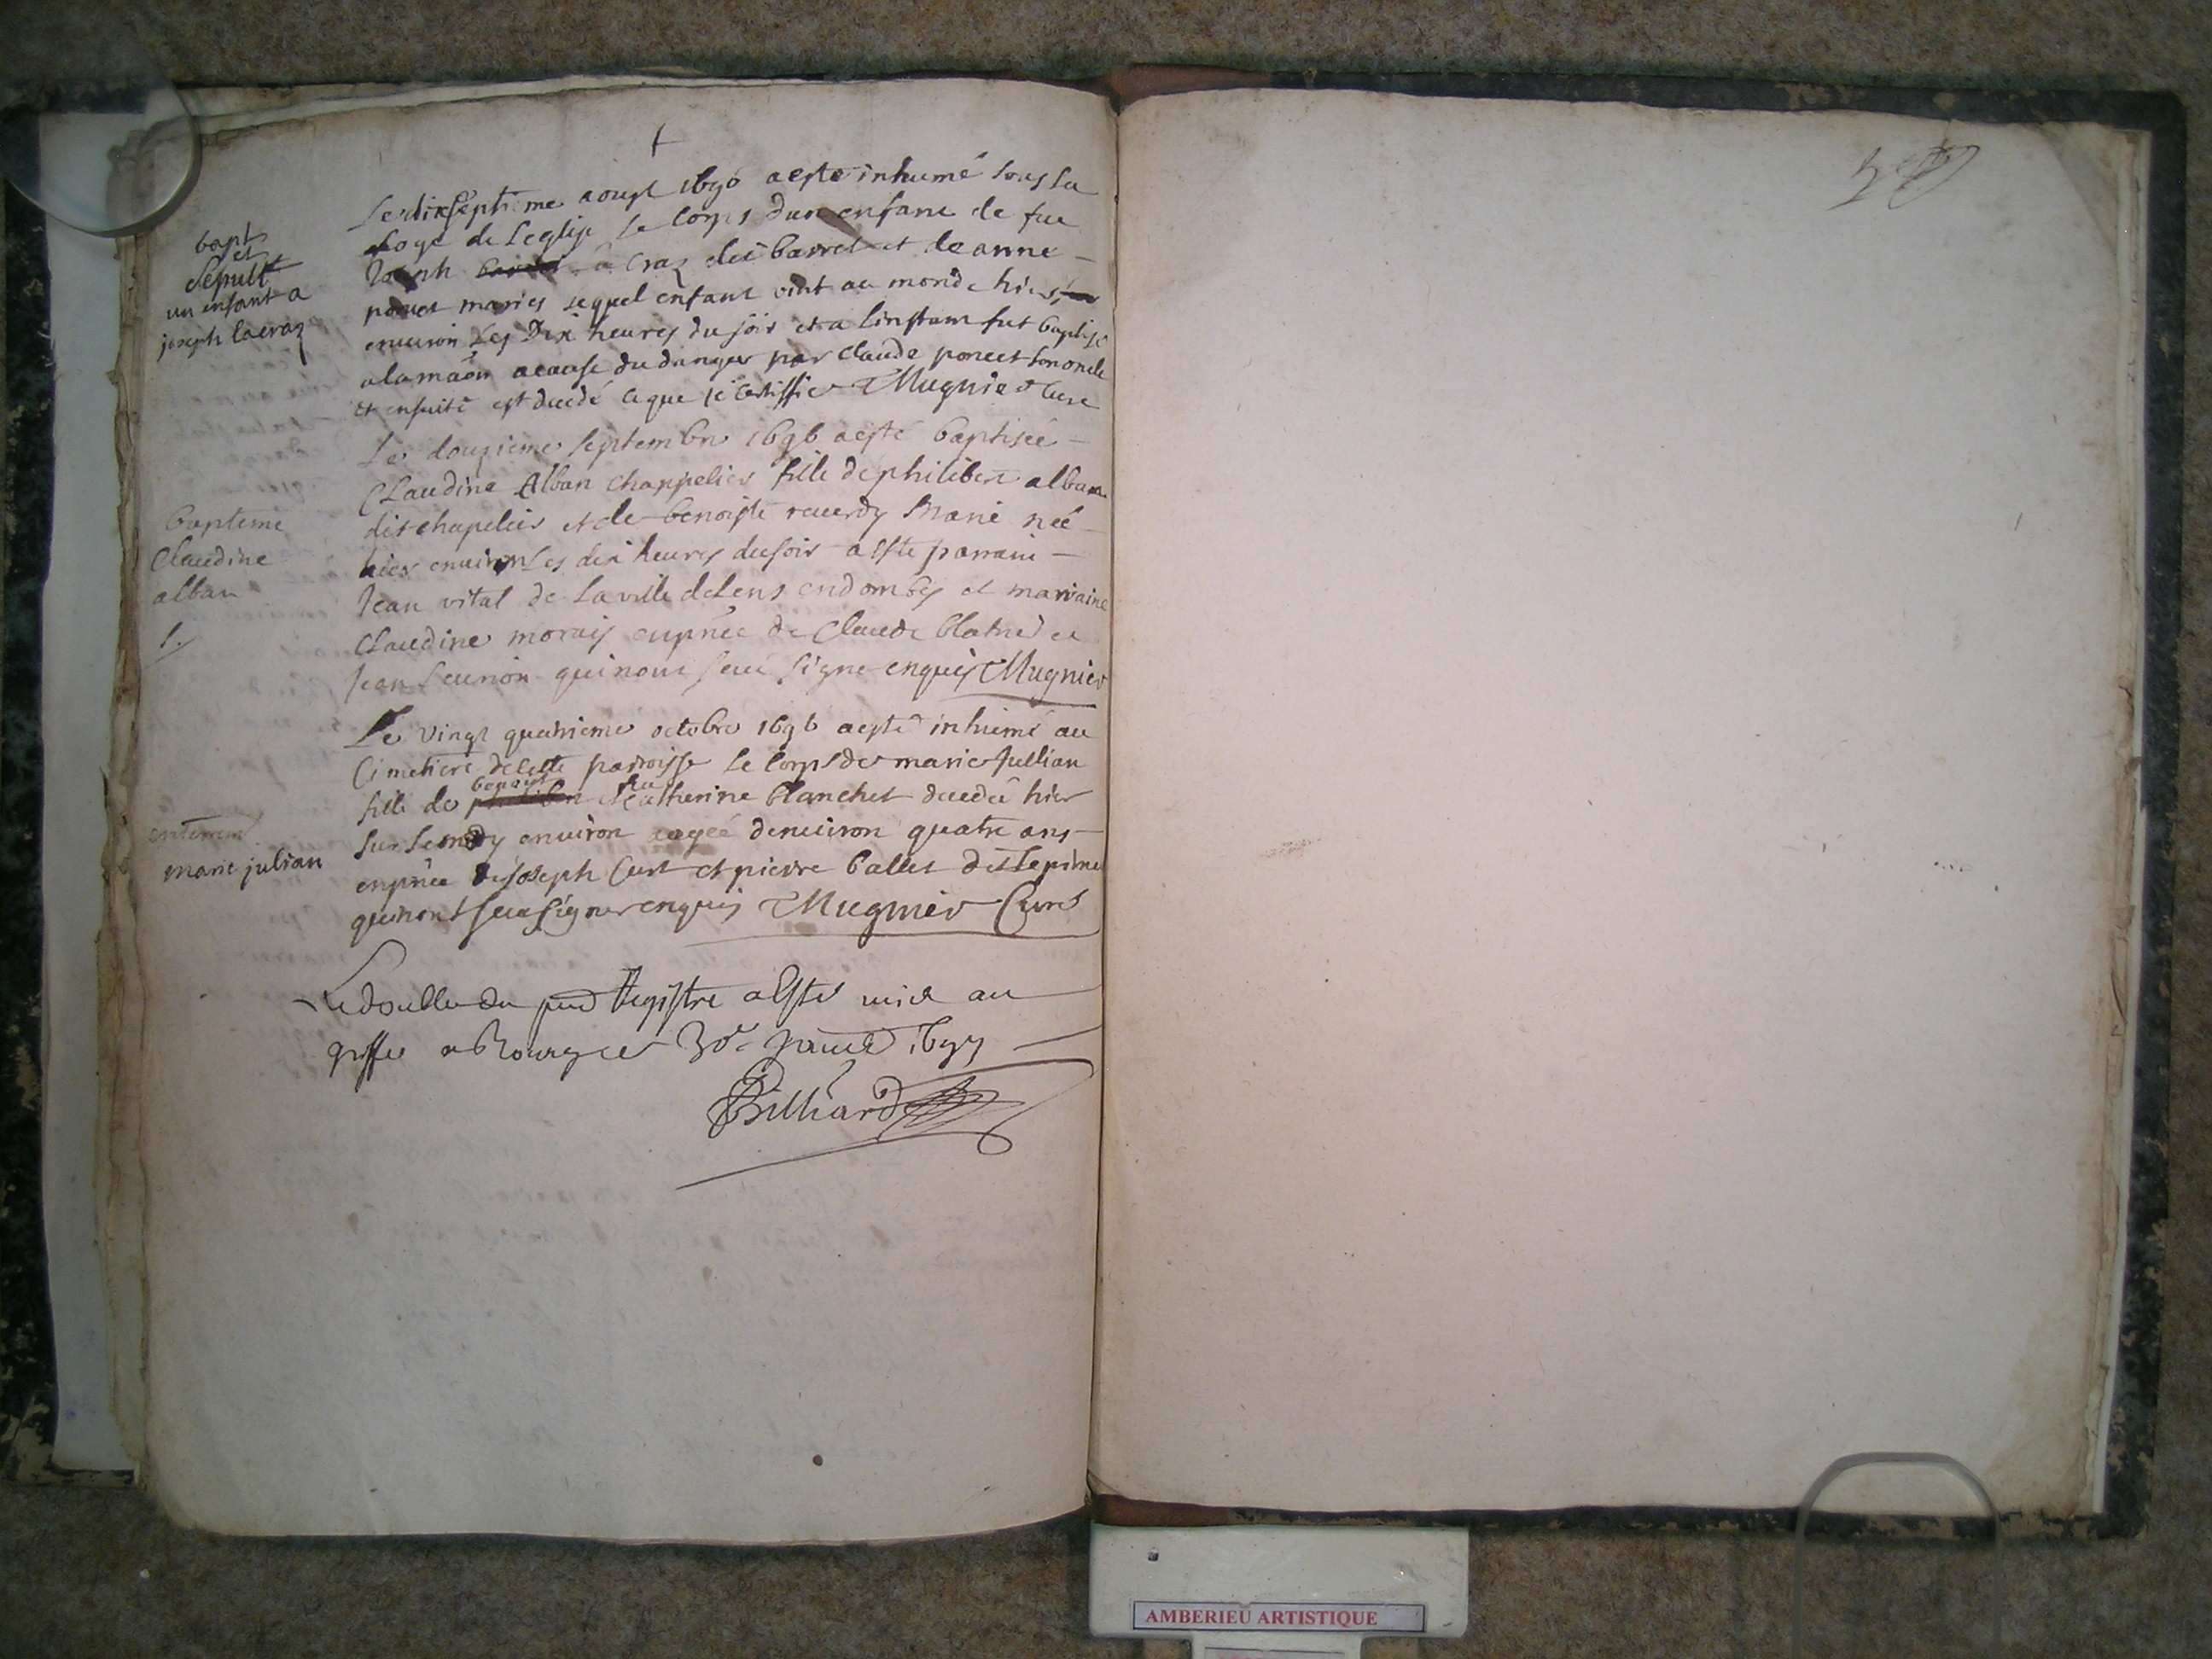 Le dixseptieme aoust 1696 a esté inhumé sous la
loge de L'eglise le Corps d'un enfant de feu
Joseph Craz dit barret et de anne
poncet mariés lequel enfant vint au monde hier
environ Les Dix heures du soir et a linstant fut baptisé
a la maõn a cause du danger par Claude poncet son oncle
et ensuite est decedé ce que je certiffie Mugnier Curé
bapt
et
sepult
un enfant a
joseph lacraz
Le douzieme septembre 1696 a esté baptiseé
Claudine Alban Chappelier fille de philibert alban
dit chapelier et de benoiste mariés neé
hier environ Les dix heures du soir a esté parrain
Jean vital de La ville de Lens en dombes et marraine
Claudine morais en pñce de Claude et
Jean qui n'ont sceu signer enquis Mugnier
bapteme
Claudine
alban
1.
Le vingt quatrieme octobre 1696 a esté inhumé au
Cimetiere de cette parroisse Le Corps de marie Jullian
fille de benoist et de Catherine blanchet decedeé hier
sur Le midy environ aageé d'environ quatre ans
en pñce de Joseph Curt et pierre ballet dit Lepine
qui n'ont sceu signer enquis Mugnier Curé
enterrem
marie julian
Le double du pnt Registre a Esté mis au
greffe a Bourg ce 30e Janvier 1697
Billiard